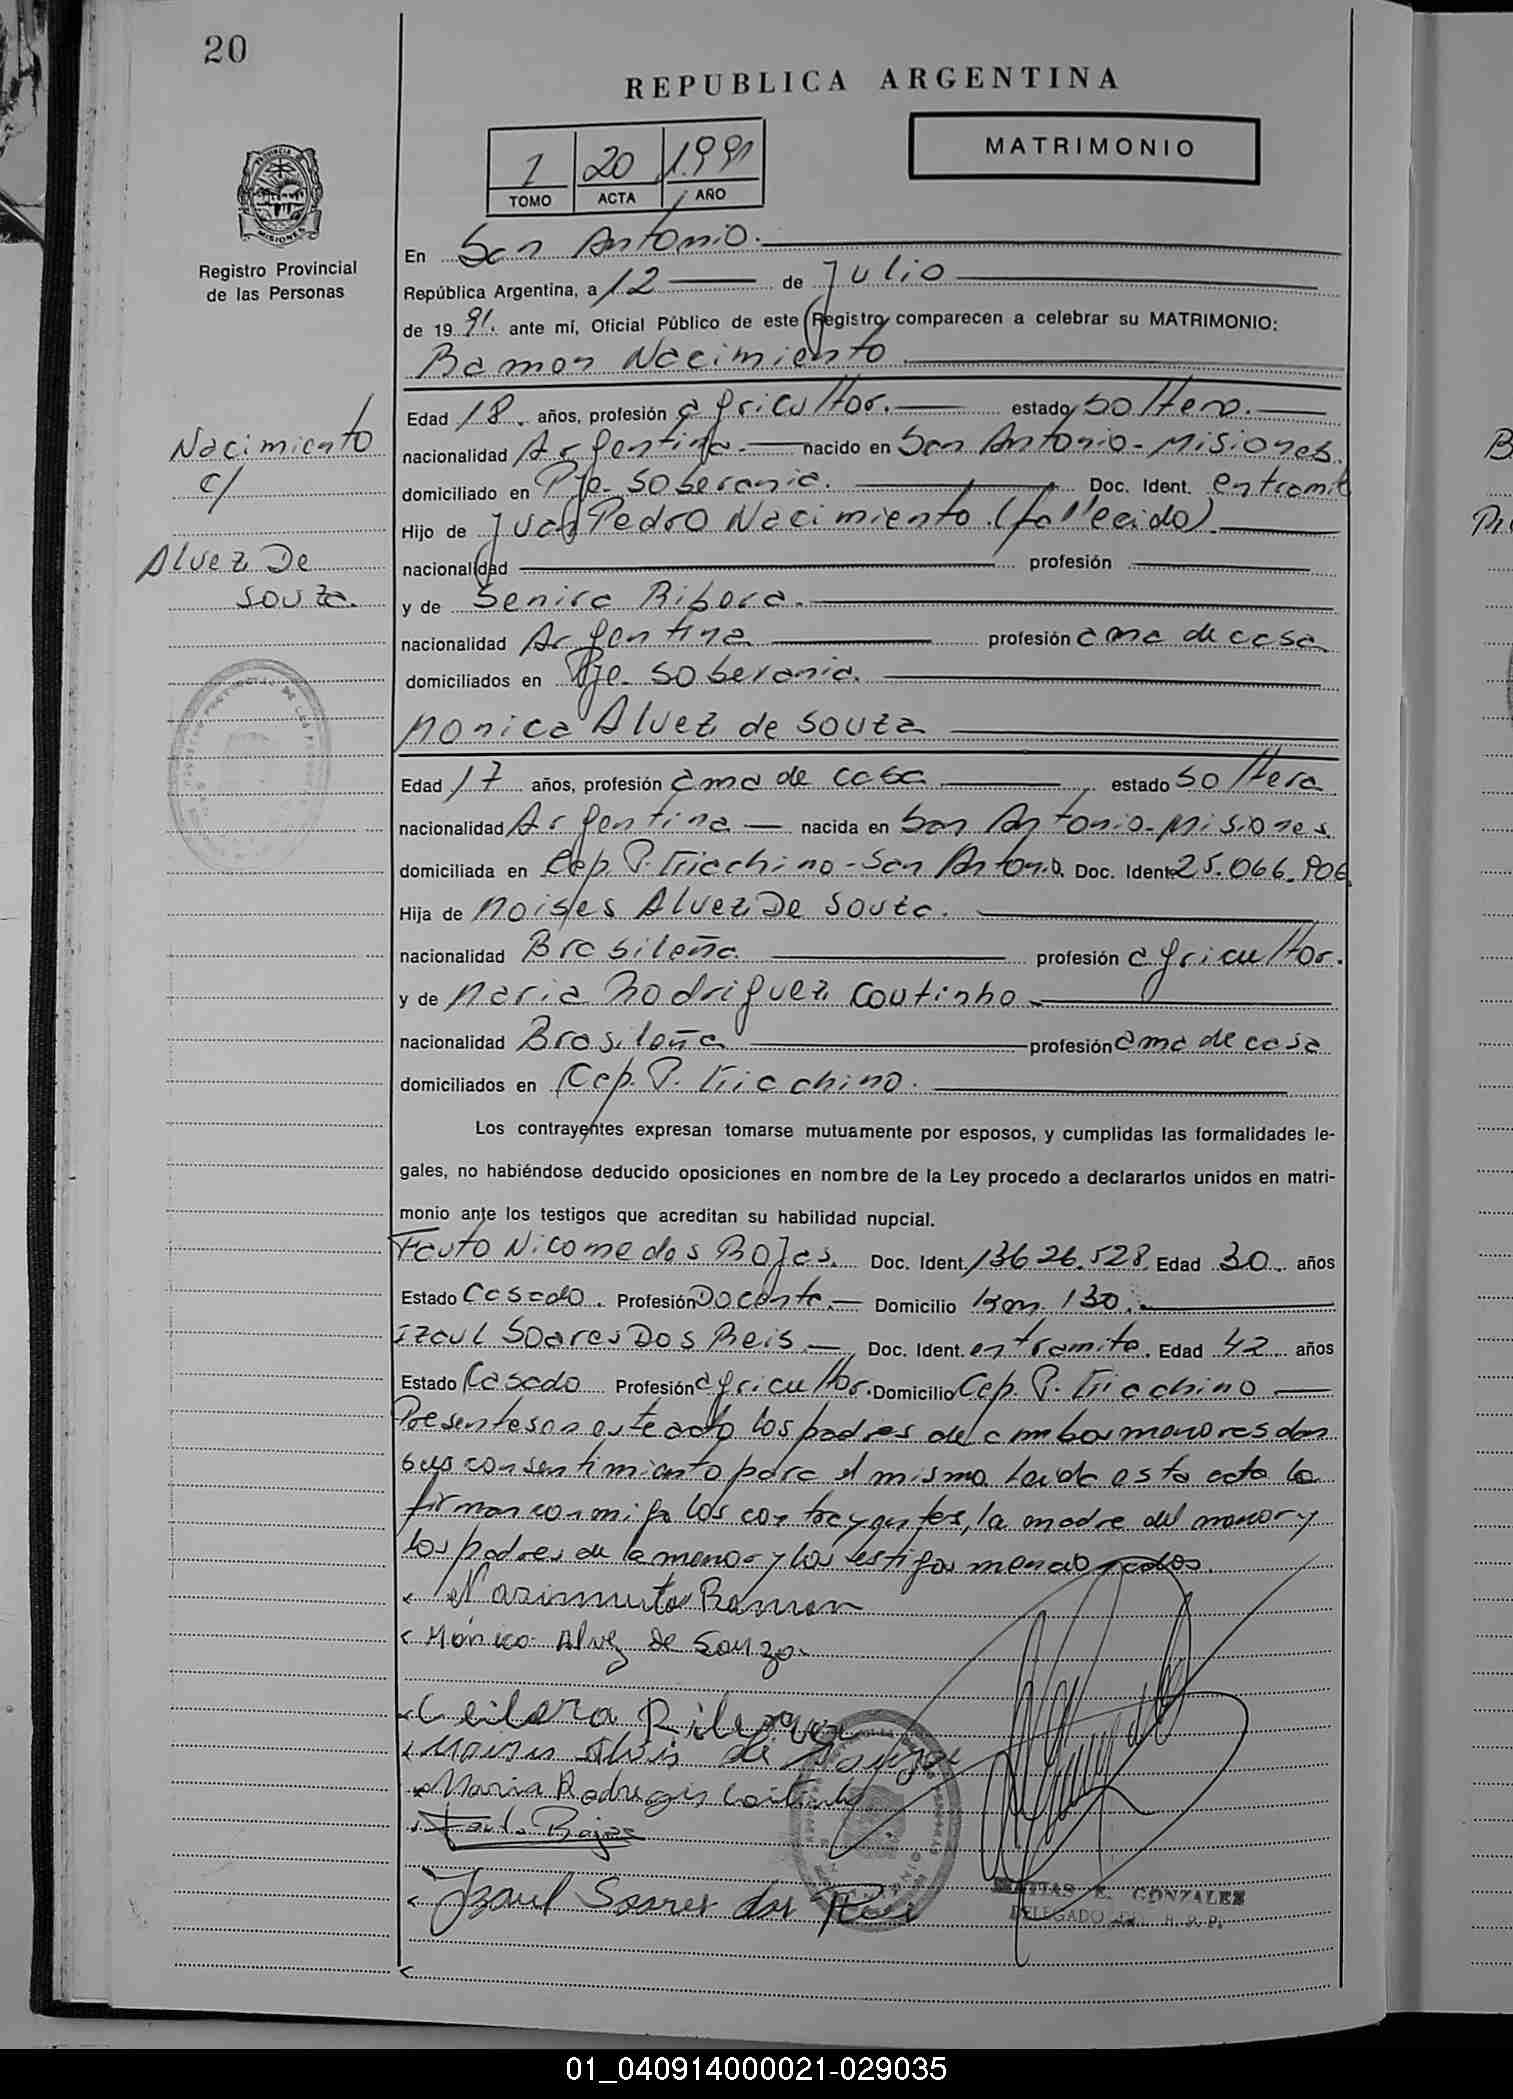 20
REPUBLICA ARGENTINA
MATRIMONIO
1 20 1.991
TOMO ACTA AÑO
PROVINCIA DE
MISIONES
Registro Provincial
de las Personas
En San Antonio.
República Argentina, a 12 de Julio
de 1991. ante mí, Oficial Público de este Registro comparecen a celebrar su MATRIMONIO:
Ramon Nacimiento
Nacimiento
c/
Alvez De
Souza.
Edad 18. años, profesión agricultor. estado soltero.
nacionalidad Argentina. nacido en San Antonio-Misiones.
domiciliado en Pje. Soberania. Doc. Ident. entramite
Hijo de Juan Pedro Nacimiento (fallecido)
nacionalidad profesión
y de Senira Ribera.
nacionalidad Argentina profesión ama de casa
domiciliados en Pje. Soberania.
Monica Alvez de Souza
Edad 17 años, profesión ama de casa estado soltera
nacionalidad Argentina nacida en San Antonio-Misiones
domiciliada en Cep. P. Triachino-San Antonio. Doc. Ident. 25.066.906.
Hija de Moises Alvez De Souza.
nacionalidad Brasileña profesión agricultor.
y de Maria Rodriguez Coutinho
nacionalidad Brasileña profesión ama de casa
domiciliados en Cep. P. Triachino.
Los contrayentes expresan tomarse mutuamente por esposos, y cumplidas las formalidades le-
gales, no habiéndose deducido oposiciones en nombre de la Ley procedo a declararlos unidos en matri-
monio ante los testigos que acreditan su habilidad nupcial.
Fauto Nicomedes Rojas. Doc. Ident. 13626.528. Edad 30. años
Estado Casado. Profesión Docente. Domicilio Km. 130.
Izaul Soares Dos Reis Doc. Ident. en tramite. Edad 42 años
Estado Casado Profesión agricultor. Domicilio Cep. P. Triachino
Presentes en este acto los padres de ambos menores dan
sus consentimiento para el mismo. Leida esta acta la
firman conmigo los contrayentes, la madre del menor y
los padres de la menor y los testigos mencionados.
Nacimiento Ramon
Mónica Alvez de Souza
Maria Rodrigues
Fauto Rojas
Izaul Soares dos Reis
E. GONZALEZ
DELEGADO DEL R. P. P.
01_040914000021-029035